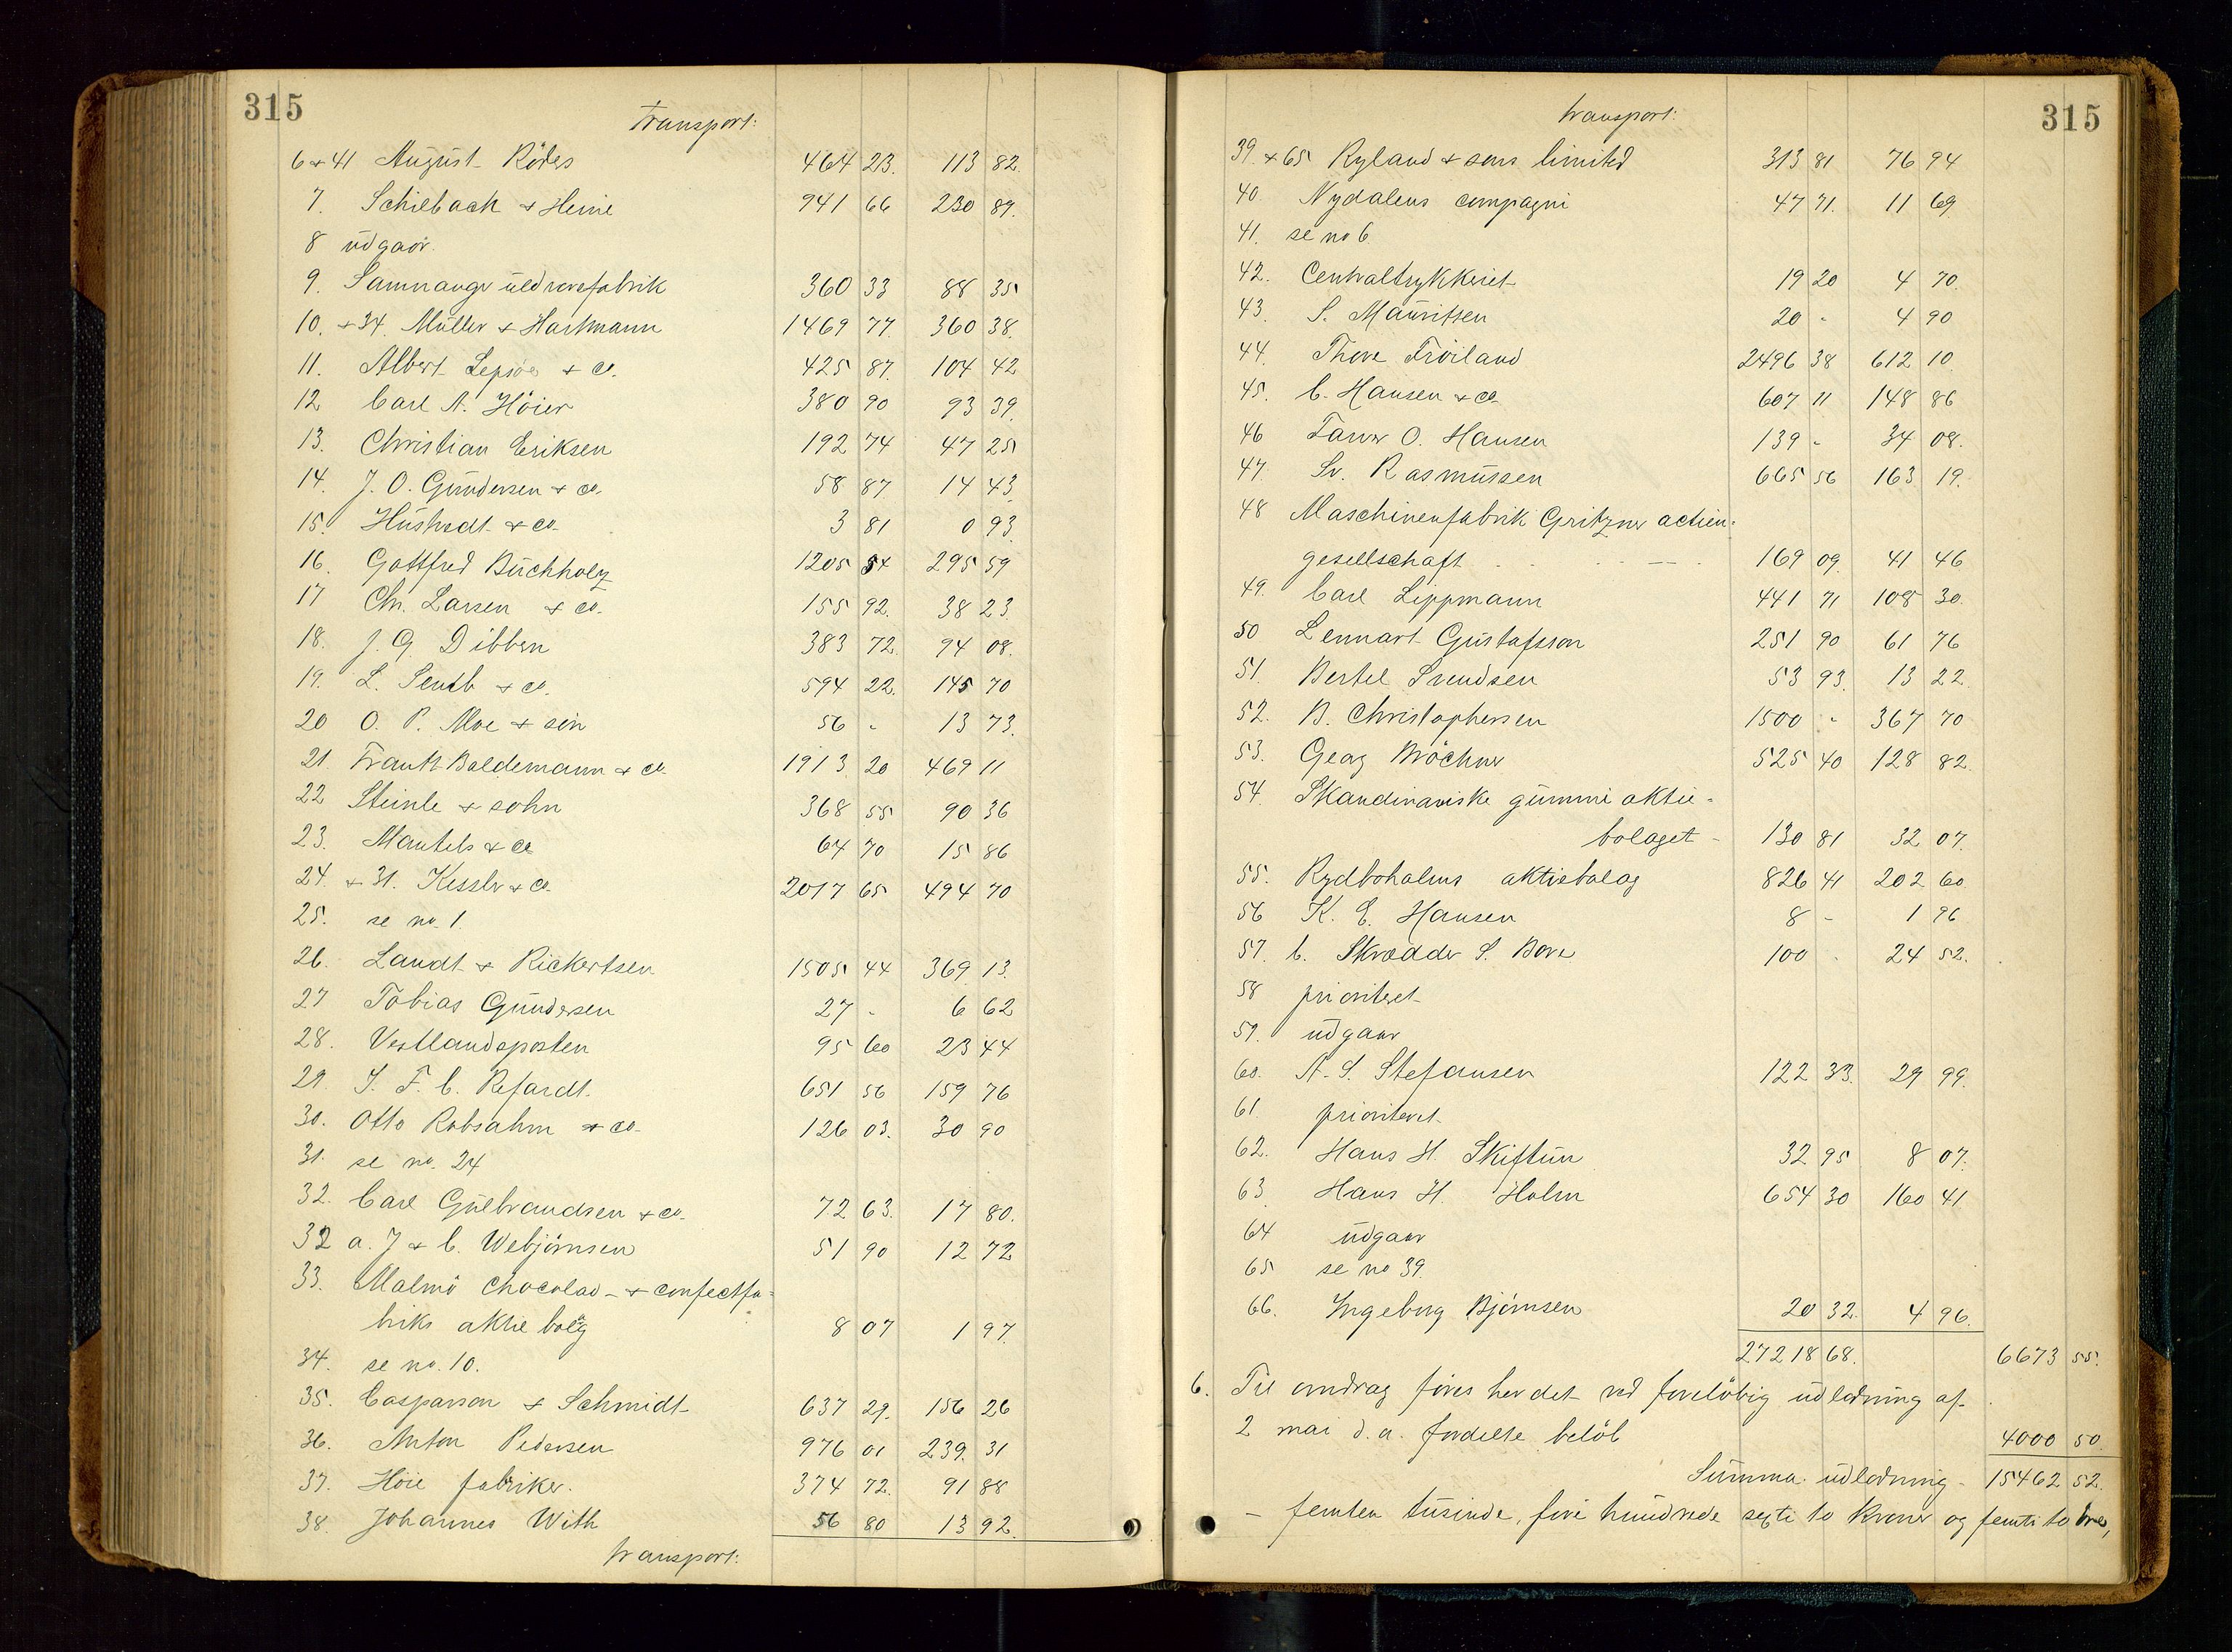 315
Transport:
6 + 41 August Röders 464 23. 113 82.
7. Schilbach + Heine 941 66 230 89.
8 udgaar.
9. Samnanger uldvarefabrik 360 33 88 35
10. + 34. Müller + Hartmann 1469 77. 360 38.
11. Albert Lepsöe + co. 425 87. 104 42
12 Carl A. Höier 380 90 93 39.
13. Christian Eriksen 192 74 47 25
14. J. O. Gundersen + co. 58 87 14 43.
15. Hustvedt + co. 3 81 0 93.
16. Gottfred Buchholz 1205 54 295 59
17 Chr. Larsen + co. 155 92. 38 23.
18. J. G. Dibbern 383 72. 94 08.
19. L. + co. 594 22. 145 70
20 O. P. Moe + sön 56 - 13 73.
21. Frantz Boldemann + co. 1913 20 469 11
22 Steinle + sohn 368 55 90 36
23. Mantels + co 64 70 15 86
24. + 31. Kessler + co. 2017 65 494 70
25. se no. 1.
26. Landt + Rickertsen 1505 44 369 13.
27 Tobias Gundersen 27 - 6 62
28. Vestlandsposten 95 60 23 44
29. J. F. C. Refardt. 651 56 159 76
30. Otto Robsahm + co. 126 03. 30 90
31. se no. 24
32. Carl Gulbrandsen + co. 72 63. 17 80.
32 a. J + C. Webjörnsen 51 90 12 72
33. Malmö chocolad- + confectfa-
briks aktiebolag 8 07 1 97.
34. se no. 10.
35. Casparson + Schmidt 637 29. 156 26
36. Anton Pedersen 976 01 239. 31
37. Höie fabriker. 374 72. 91 88
38. Johannes With 56 80 13 92.
transport:
315
transport:
39. + 65 Ryland + sons limited 313 81 76 94
40. Nydalens compagni 47 71. 11 69.
41. se no 6.
42. Centraltrykkeriet 19 20 4 70.
43. S. Mauritsen 20 - 4 90
44. Thore Fröiland 2496 38 612 10.
45. C. Hansen + co 607 11 148 86
46 Farver O. Hansen 139 - 34 08.
47. Sv. Rasmussen 665 56 163 19.
48 Maschinenfabrik Gritzner actien-
gesellschaft 169 09. 41 46
49. Carl Lippmann 441 71 108 30.
50 Lennart Gustafsson 251 90 61 76
51. Bertel Svendsen 53 93. 13 22.
52. B. Christophersen 1500 - 367 70
53. Georg Bröchner 525 40 128 82.
54. Skandinaviske gummi aktie-
bolaget - 130 81 32 07.
55. Rydboholms aktiebolag 826 41 202 60.
56 K. E. Hansen 8 - 1 96
57. C. Skrædder S. Bore 100 - 24 52.
58 prioritert
59. udgaar
60. A. S. Stefansen 122 33. 29 99.
61. prioritert
62. Hans H. Skiftun 32 95 8 07.
63. Hans H. Holm 654 30 160 41.
64 udgaar
65 se no 39.
66. Ingeborg Bjørnsen 20 32. 4 96.
27218 68. 6673 55.
6. Til omdrag føres her det ved foreløbig udlodning af
2 mai d. a. fordelte beløb 4000 50.
Summa udlodning - 15462 52.
- femten tusinde, fire hundrede sexti to kroner og femti to øre,